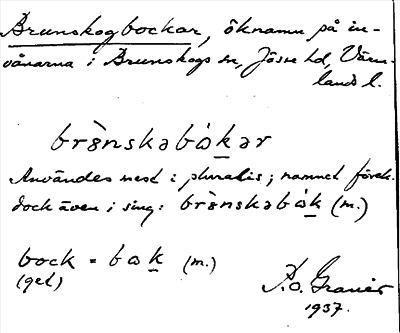 Brunskogbockar, öknamn på in-
vånarna i Brunskogs sn, Jösse hd, Värm-
lands l.
brǜnskəbὼk̲ər
Användes mest i pluralis; namnet förek.
dock även i sing: brǜnskəbὼk̲ (m.)
bock = bωk̲ (m.)
(get)
P.O. Graner
1937.